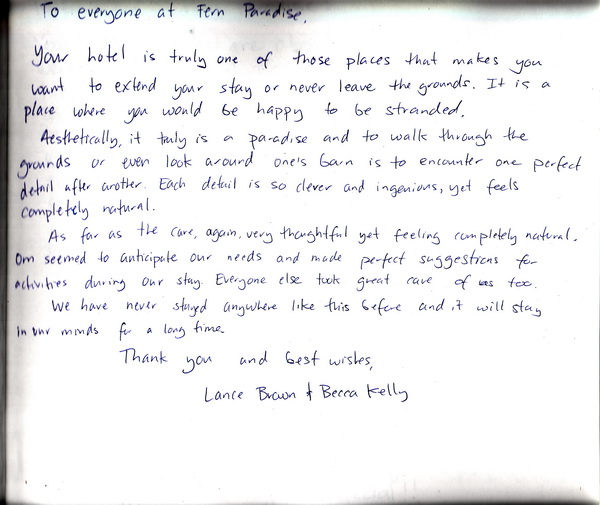 To everyone at Fern Paradise,
Your hotel is truly one of those places that makes you
want to extend your stay or never leave the grounds. It is a
place where you would be happy to be stranded.
Aesthetically, it truly is a paradise and to walk through the
grounds or even look around one's barn is to encounter one perfect
detail after another. Each detail is so clever and ingenious, yet feels
completely natural.
As far as the care, again, very thoughtful yet feeling completely natural.
Om seemed to anticipate our needs and made perfect suggestions for
activities during our stay. Everyone else took great care of us too.
We have never stayed anywhere like this before and it will stay
in our minds for a long time.
Thank you and best wishes,
Lance Brown & Becca Kelly